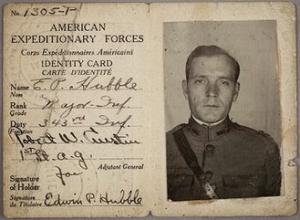 No. 1305-F
AMERICAN
EXPEDITIONARY FORCES
Corps Expéditionnaires Américains
IDENTITY CARD
CARTE D'IDENTITÉ
Name E. P. Hubble
Nom
Rank Major-Inf.
Grade
Duty 343rd Inf.
Robert W. Austin
1st
A.G.
Adjutant General
for
Signature
of Holder
Signature
du Titulaire Edwin P. Hubble